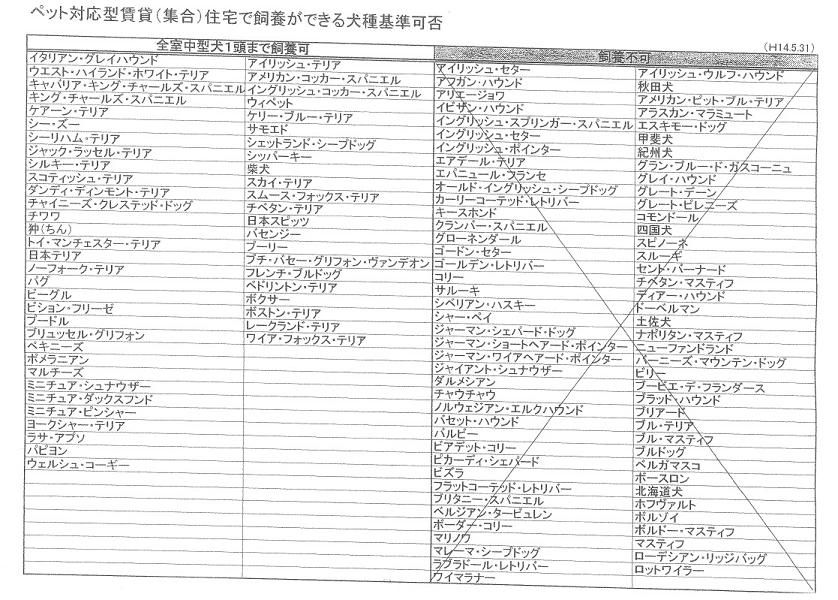 ペット対応型賃貸（集合）住宅で飼養ができる犬種基準可否
（H14.5.31）
全室中型犬1頭まで飼養可
イタリアン・グレイハウンド
ウエスト・ハイランド・ホワイト・テリア
キャバリア・キング・チャールズ・スパニエル
キング・チャールズ・スパニエル
ケアーン・テリア
シー・ズー
シーリハム・テリア
ジャック・ラッセル・テリア
シルキー・テリア
スコティッシュ・テリア
ダンディ・ディンモント・テリア
チャイニーズ・クレステッド・ドッグ
チワワ
狆（ちん）
トイ・マンチェスター・テリア
日本テリア
ノーフォーク・テリア
パグ
ビーグル
ビション・フリーゼ
プードル
ブリュッセル・グリフォン
ペキニーズ
ポメラニアン
マルチーズ
ミニチュア・シュナウザー
ミニチュア・ダックスフンド
ミニチュア・ピンシャー
ヨークシャー・テリア
ラサ・アプソ
パピヨン
ウェルシュ・コーギー
アイリッシュ・テリア
アメリカン・コッカー・スパニエル
イングリッシュ・コッカー・スパニエル
ウィペット
ケリー・ブルー・テリア
サモエド
シェットランド・シープドッグ
シッパーキー
柴犬
スカイ・テリア
スムース・フォックス・テリア
チベタン・テリア
日本スピッツ
バセンジー
プーリー
プチ・バセー・グリフォン・ヴァンデオン
フレンチ・ブルドッグ
ベドリントン・テリア
ボクサー
ボストン・テリア
レークランド・テリア
ワイア・フォックス・テリア
飼養不可
アイリッシュ・セター
アフガン・ハウンド
アリエージョワ
イビザン・ハウンド
イングリッシュ・スプリンガー・スパニエル
イングリッシュ・セター
イングリッシュ・ポインター
エアデール・テリア
エパニュール・フランセ
オールド・イングリッシュ・シープドッグ
カーリーコーテッド・レトリバー
キースホンド
クランバー・スパニエル
グローネンダール
ゴードン・セター
ゴールデン・レトリバー
コリー
サルーキ
シベリアン・ハスキー
シャー・ペイ
ジャーマン・シェパード・ドッグ
ジャーマン・ショートヘアード・ポインター
ジャーマン・ワイアヘアード・ポインター
ジャイアント・シュナウザー
ダルメシアン
チャウチャウ
ノルウェジアン・エルクハウンド
バセット・ハウンド
バルビー
ビアデット・コリー
ピカーディ・シェパード
ビズラ
フラットコーテッド・レトリバー
ブリタニー・スパニエル
ベルジアン・タービュレン
ボーダー・コリー
マリノウ
マレーマ・シープドッグ
ラブラドール・レトリバー
ワイマラナー
アイリッシュ・ウルフ・ハウンド
秋田犬
アメリカン・ピット・ブル・テリア
アラスカン・マラミュート
エスキモー・ドッグ
甲斐犬
紀州犬
グラン・ブルー・ド・ガスコーニュ
グレイ・ハウンド
グレート・デーン
グレート・ピレニーズ
コモンドール
四国犬
スピノーネ
スルーギ
セント・バーナード
チベタン・マスティフ
ディアー・ハウンド
ドーベルマン
土佐犬
ナポリタン・マスティフ
ニューファンドランド
バーニーズ・マウンテン・ドッグ
ビリー
ブービエ・デ・フランダース
ブラッド・ハウンド
ブリアード
ブル・テリア
ブル・マスティフ
ブルドッグ
ベルガマスコ
ボースロン
北海道犬
ホフヴァルト
ボルゾイ
ボルドー・マスティフ
マスティフ
ローデシアン・リッジバッグ
ロットワイラー